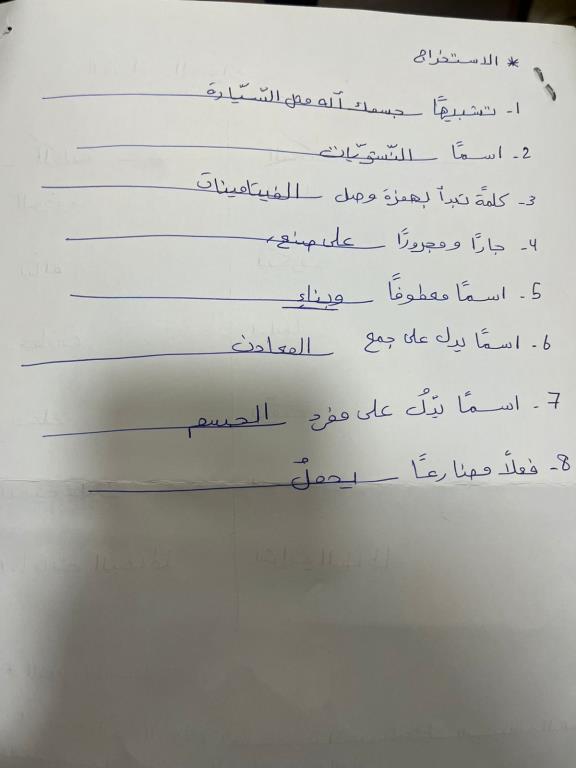 * الاستخراج
1- تشبيهًا جسمك آله مثل السّيّارة
2- اسمًا النّشويّات
3- كلمةً تبدأ بهمزة وصل الفيتامينات
4- جارًا ومجرورًا على صنع
5- اسمًا معطوفًا وبناءِ
6- اسمًا يدل على جمع المعادن
7- اسمًا يدّلُ على مفرد الجسم
8- فعلاً مضارعًا يحملُ